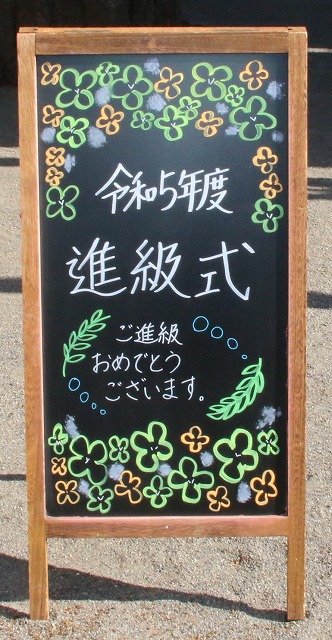 令和5年度
進級式
ご進級
おめでとう
ございます。